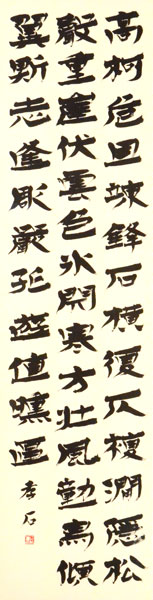 高柯危且竦鋒石橫復仄複澗隱松
聲重崖伏雲色冰閉寒方壯風動鳥傾
翼斯志逢彫嚴孤遊值曛逼